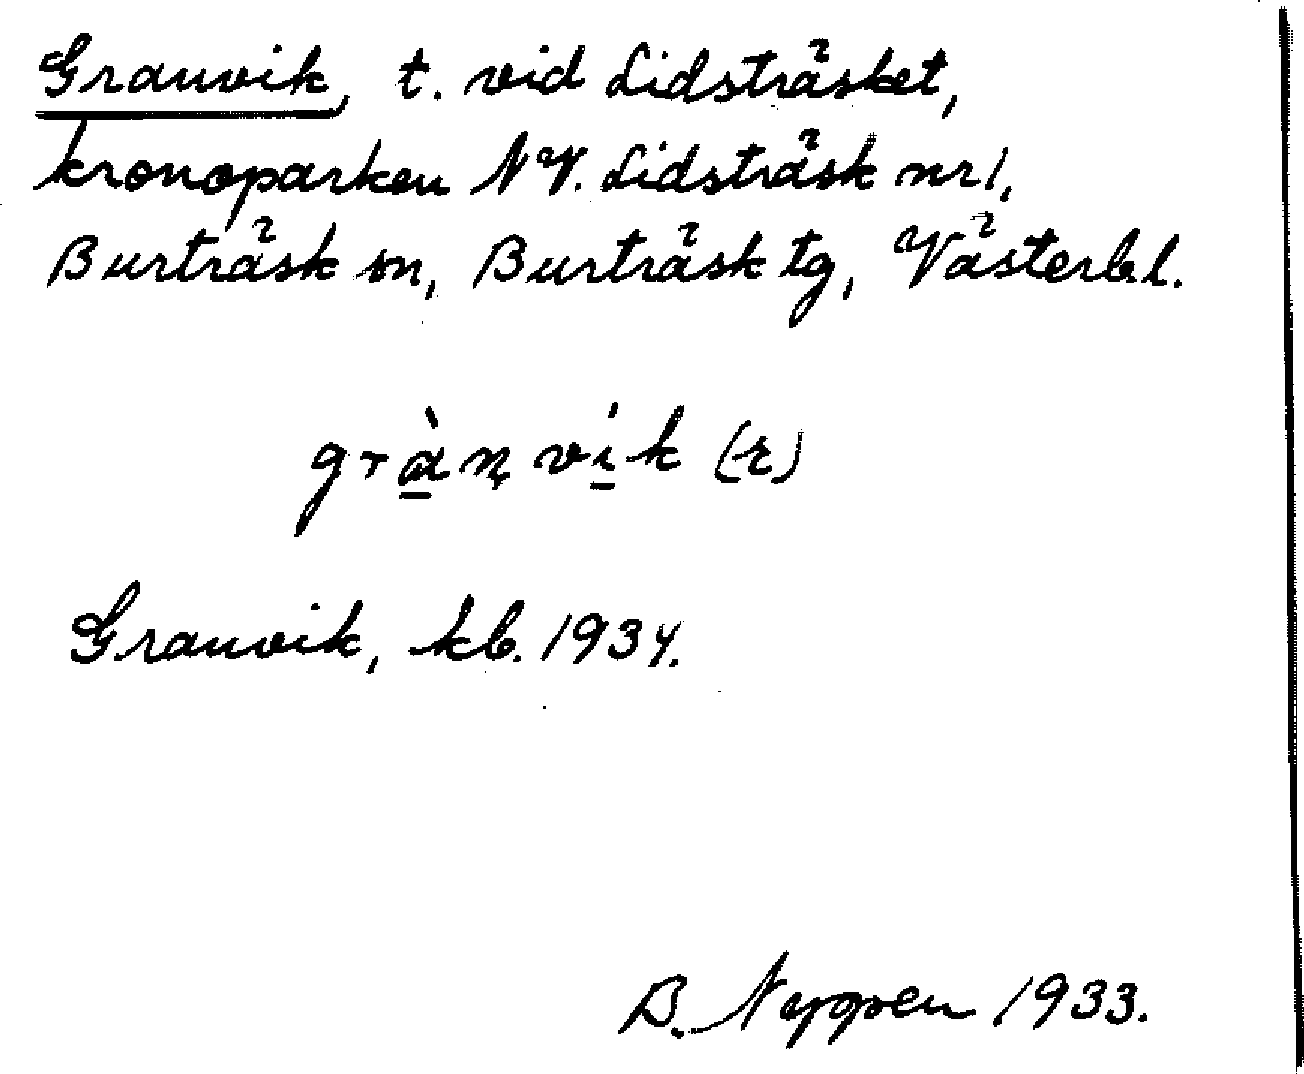 Granvik, t. vid Lidsträsket,
kronoparken N V. Lidsträsk nr 1,
Burträsk sn, Burträsk tg, Västerb.l.
grànvik (-r)
Granvik, kb. 1934.
B. 1933.